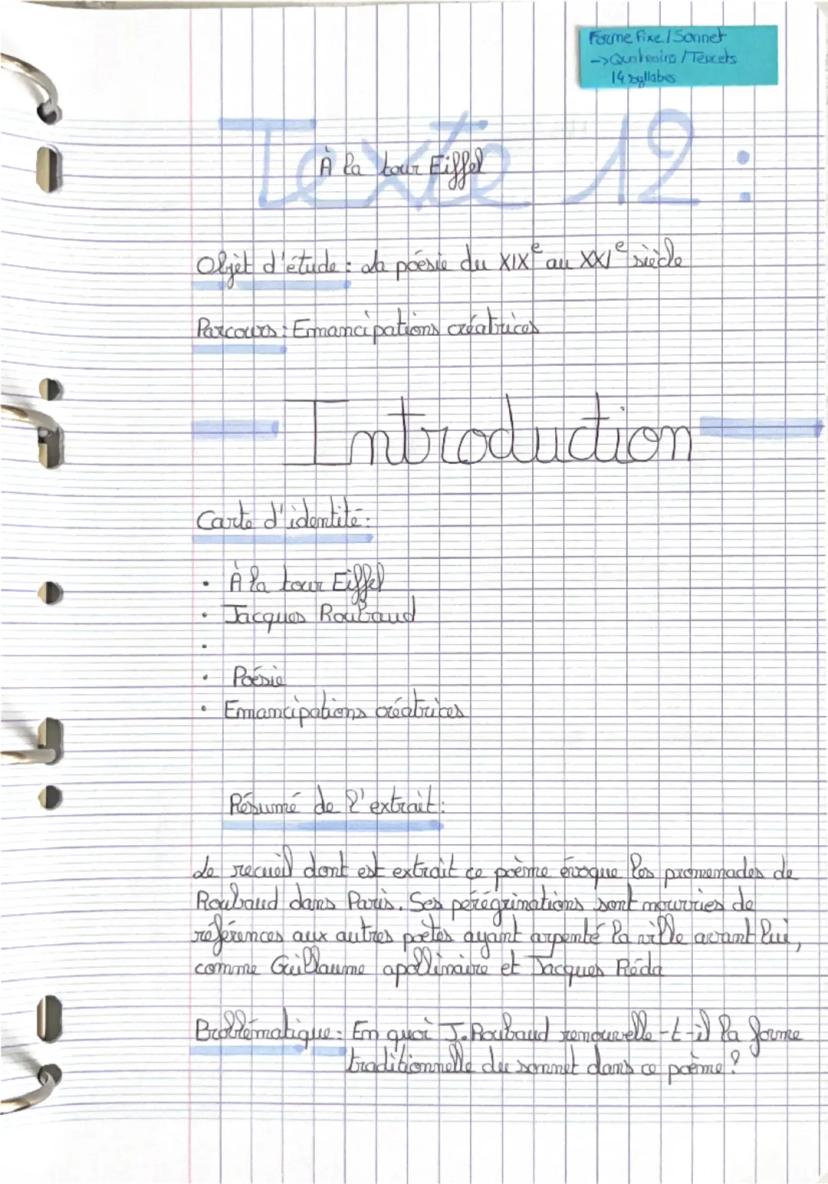 Forme Fixe/Sonnet
-> Quatrains/Tercets
14 syllabes
Texte 12 :
À la tour Eiffel
Objet d'étude : La poésie du XIXe au XXIe siècle
Parcours : Emancipations créatrices
Introduction
Carte d'identité :
• À la tour Eiffel
• Jacques Roubaud
•
• Poésie
• Emancipations créatrices
Résumé de l'extrait :
Le recueil dont est extrait ce poème évoque les promenades de
Roubaud dans Paris. Ses pérégrinations sont nourries de
références aux autres poètes ayant arpenté la ville avant lui,
comme Guillaume apollinaire et Jacques Réda
Problématique : En quoi J. Roubaud renouvelle-t-il la forme
traditionnelle du sonnet dans ce poème ?